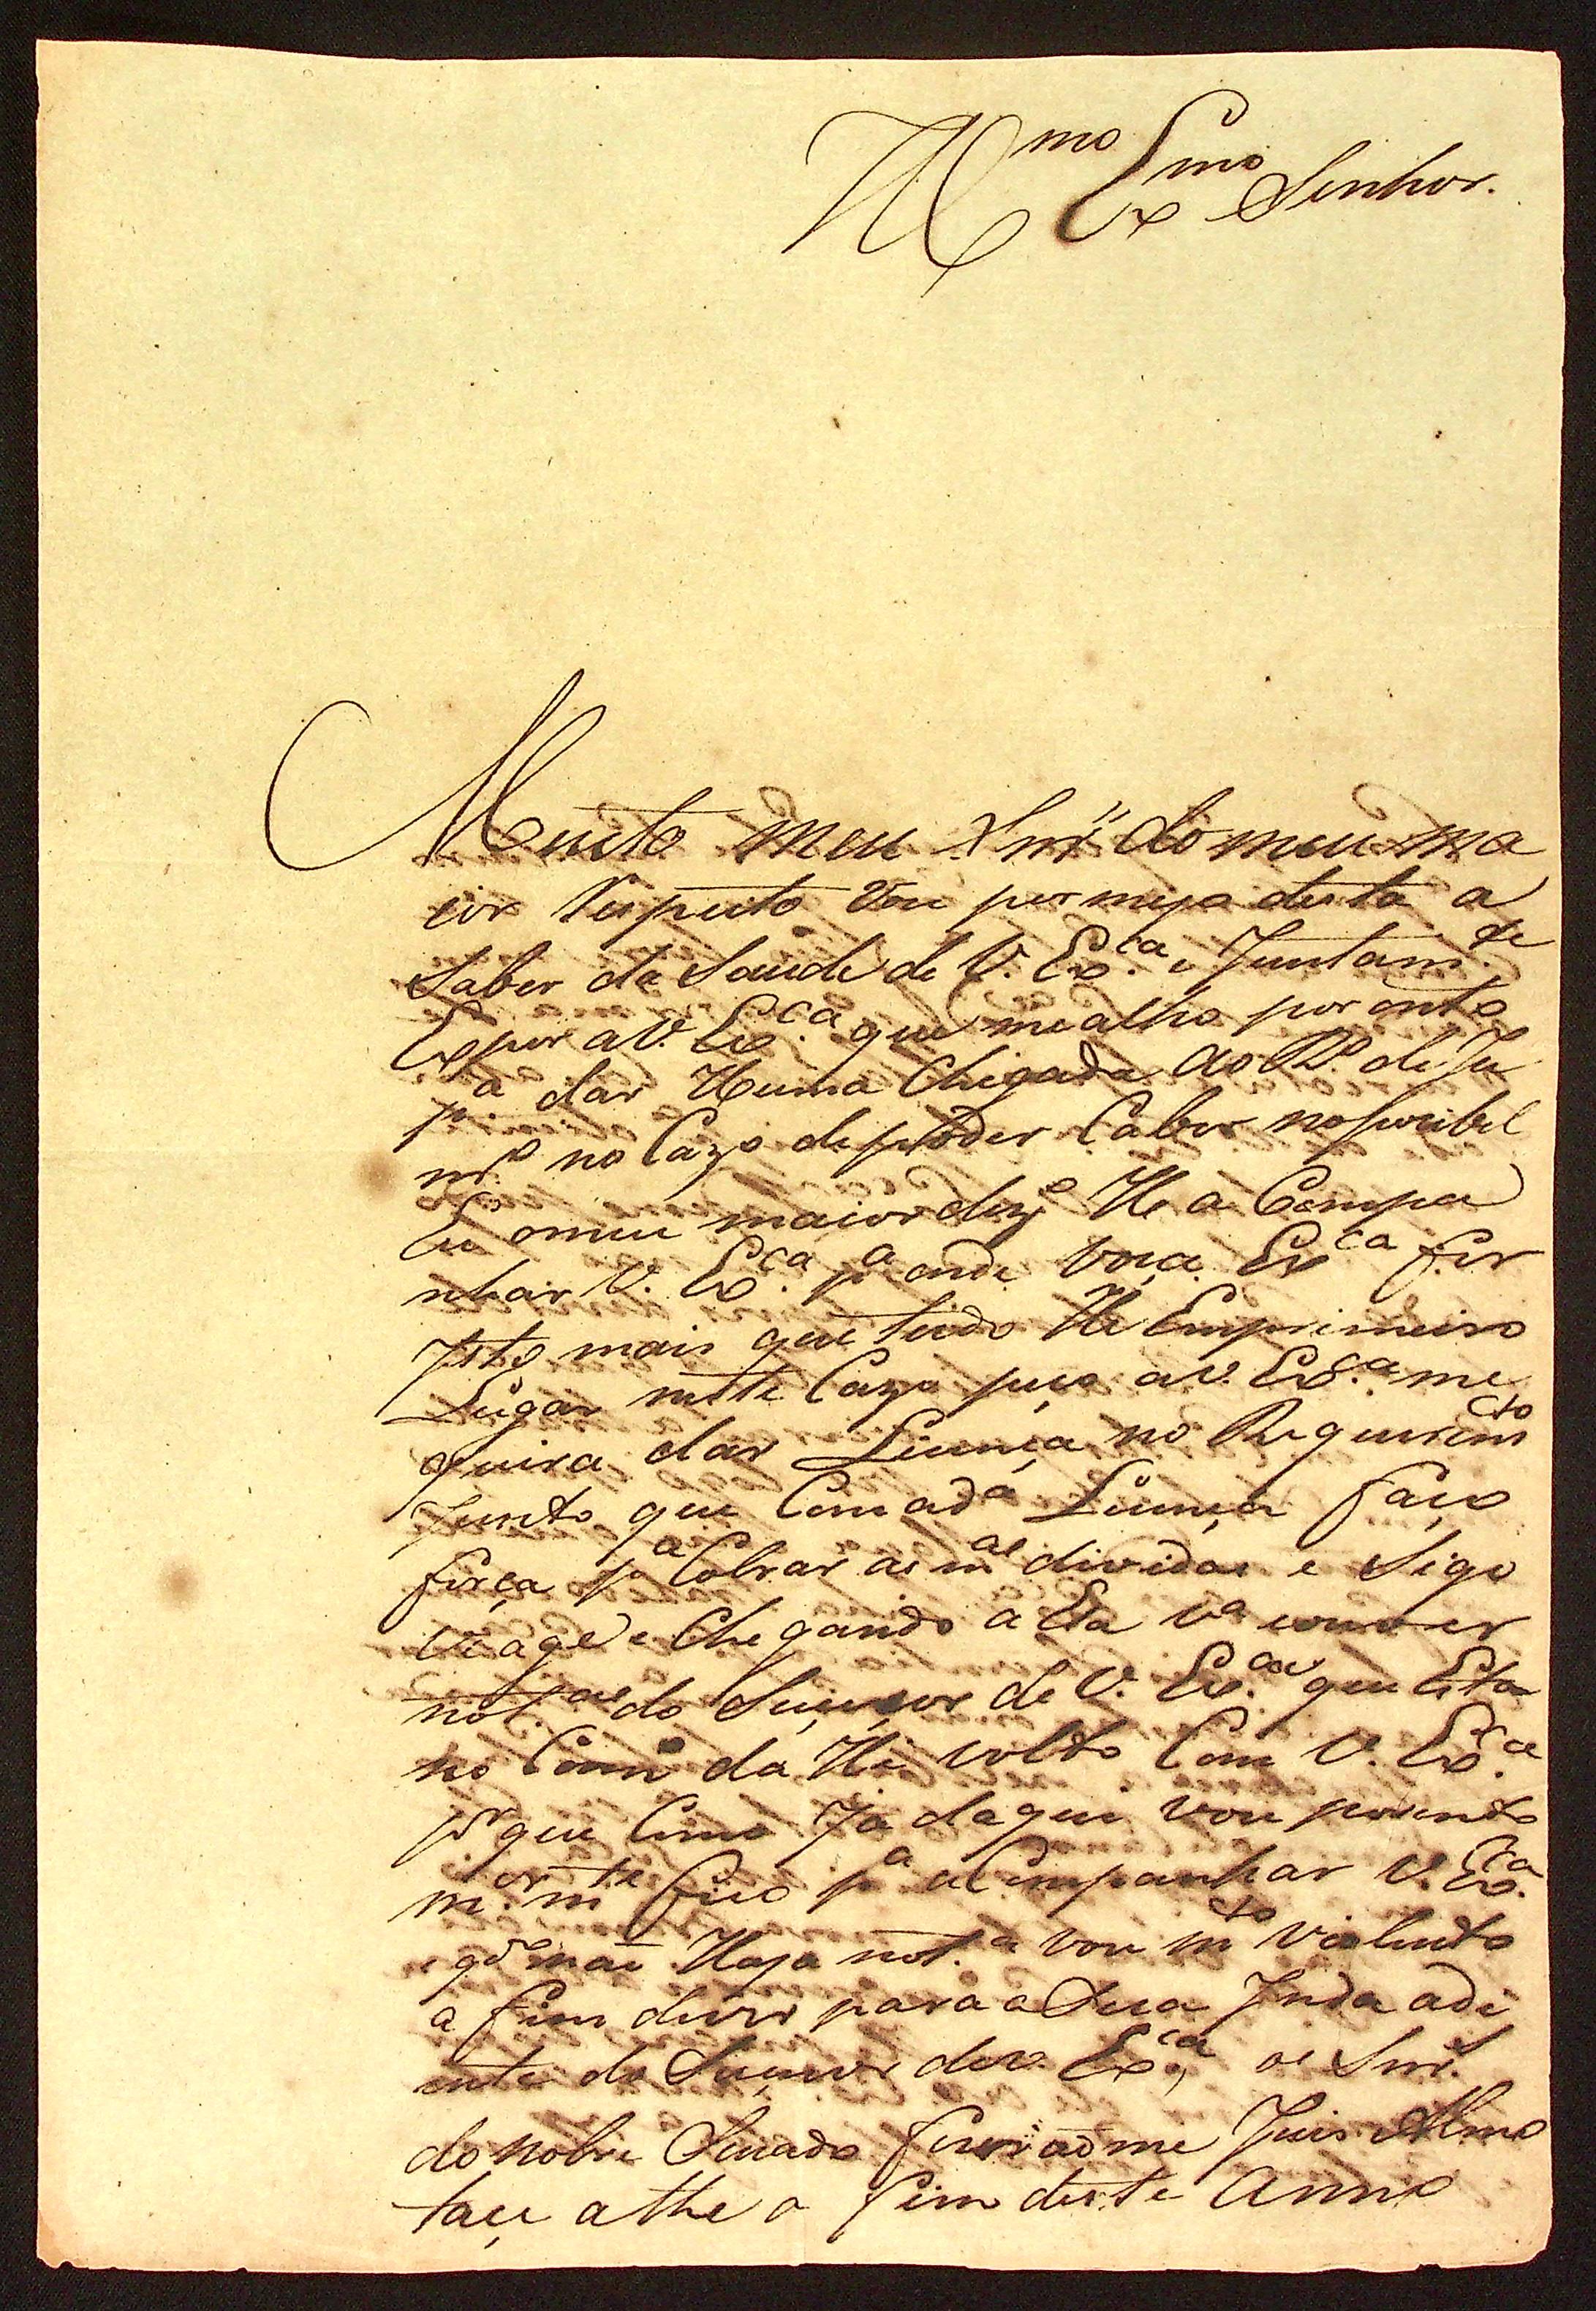 Illmo Exmo Senhor.
Muito meu Snr̃ do meu ma
ior Respeito Vou por meyo desta a
Saber da Saude de V. Exca. e Juntamte.
Expor a V. Exca. que me acho poronto
pa. dar Huma Chegada ao R. de Ja
nro. no Cazo de ploder Caber no pocibel
Eu o meu maior dezo. He a Compa
nhar V. Exca. pa onde Voça Exca for
Isto mais que tudo He Emprimeiro
Lugar neste Cazo peço a V. Exca. me
queira dar Licença no Requerimto
Junto que Com a da Licença Faço
força pa Cobrar as mas dividas e Sigo
viage e Chegando a Esta Va e ouver
notas. do Suceçor de V. Exca. que Esta
no Camo da Hi volto Com V. Exca.
pr que Como Ja daqui vou poronto
mr. mte fico pa aCompanhar V. Exca.
e qdo nāo Haja nota. vou mto violento
a fim de vir para a Sua Inda adi
ente do Suceçor de V. Exca, os Snrs.
do nobre Senado fizerāo me Juis Almo
tace athe o fim deste Anno